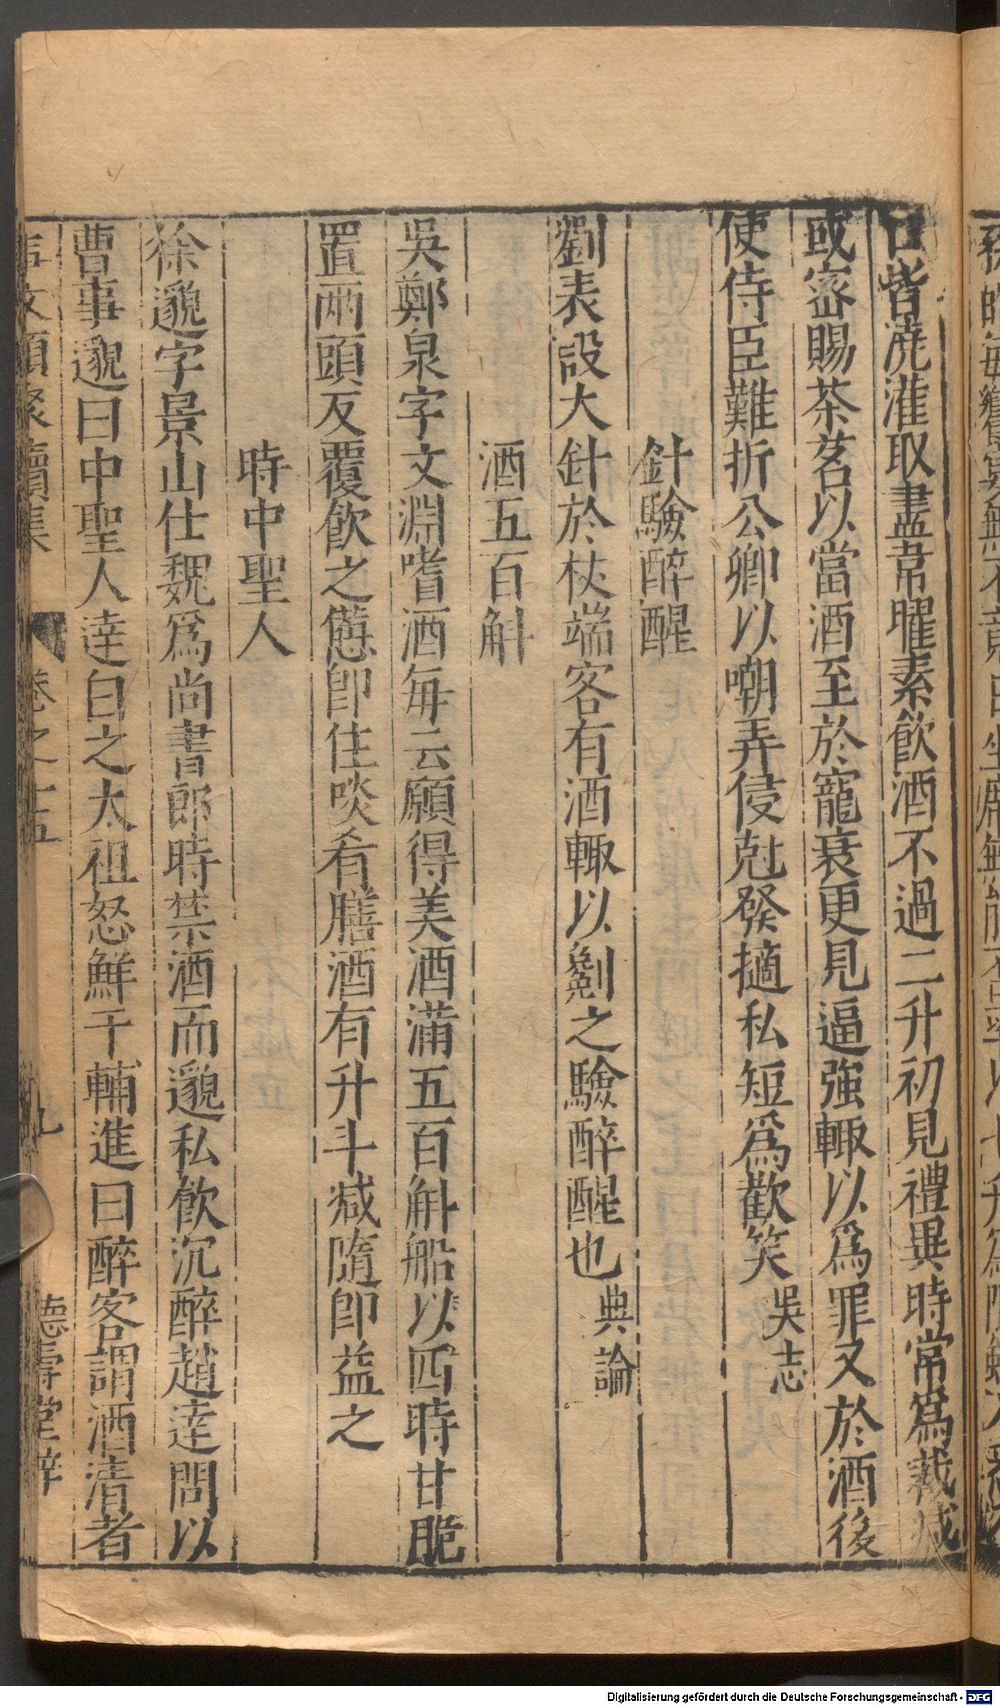 口皆澆灌取盡韋曜素飲酒不過二升初見禮異時常爲裁减
或宻賜茶茗以當酒至於寵衰更見逼強輙以爲罪又於酒後
使侍臣難折公卿以嘲弄侵尅發擿私短爲歡笑吳志
針驗醉醒
劉表設大針於杖端客有酒輙以劖之驗醉醒也典論
酒五百斛
吳鄭泉字文淵嗜酒每云願得美酒滿五百斛船以四時甘脆
置兩頭反覆飲之憊卽住啖肴膳酒有升斗减隨卽益之
時中聖人
徐邈字景山仕魏爲尚書郎時禁酒而邈私飲沉醉趙達問以
曹事邈曰中聖人達白之太祖怒鮮于輔進曰醉客謂酒清者
事文類聚續集 卷之十五 九 德壽堂梓
Digitalisierung gefördert durch die Deutsche Forschungsgemeinschaft - DFG